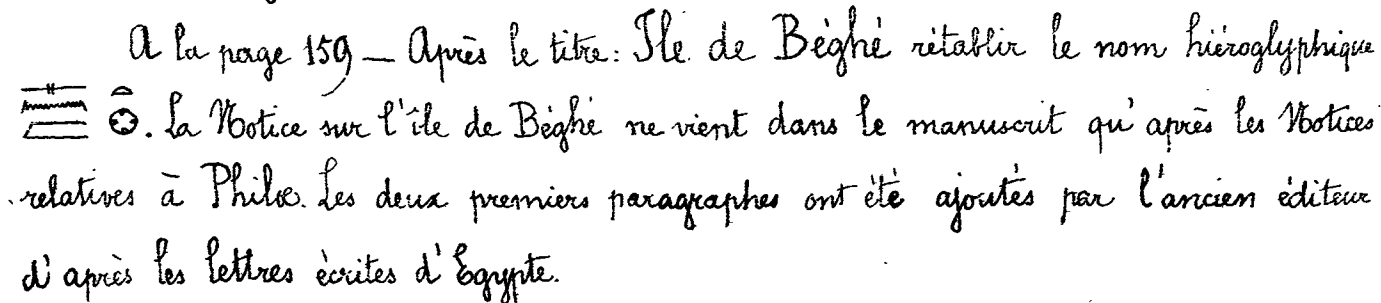 A la page 159 — Après le titre : Ile de Béghé rétablir le nom hiéroglyphique
𓊃𓈖𓐝𓏏𓊖. La Notice sur l'île de Béghé ne vient dans le manuscrit qu'après les Notices
relatives à Philœ. Les deux premiers paragraphes ont été ajoutés par l'ancien éditeur
d'après les lettres écrites d'Egypte.